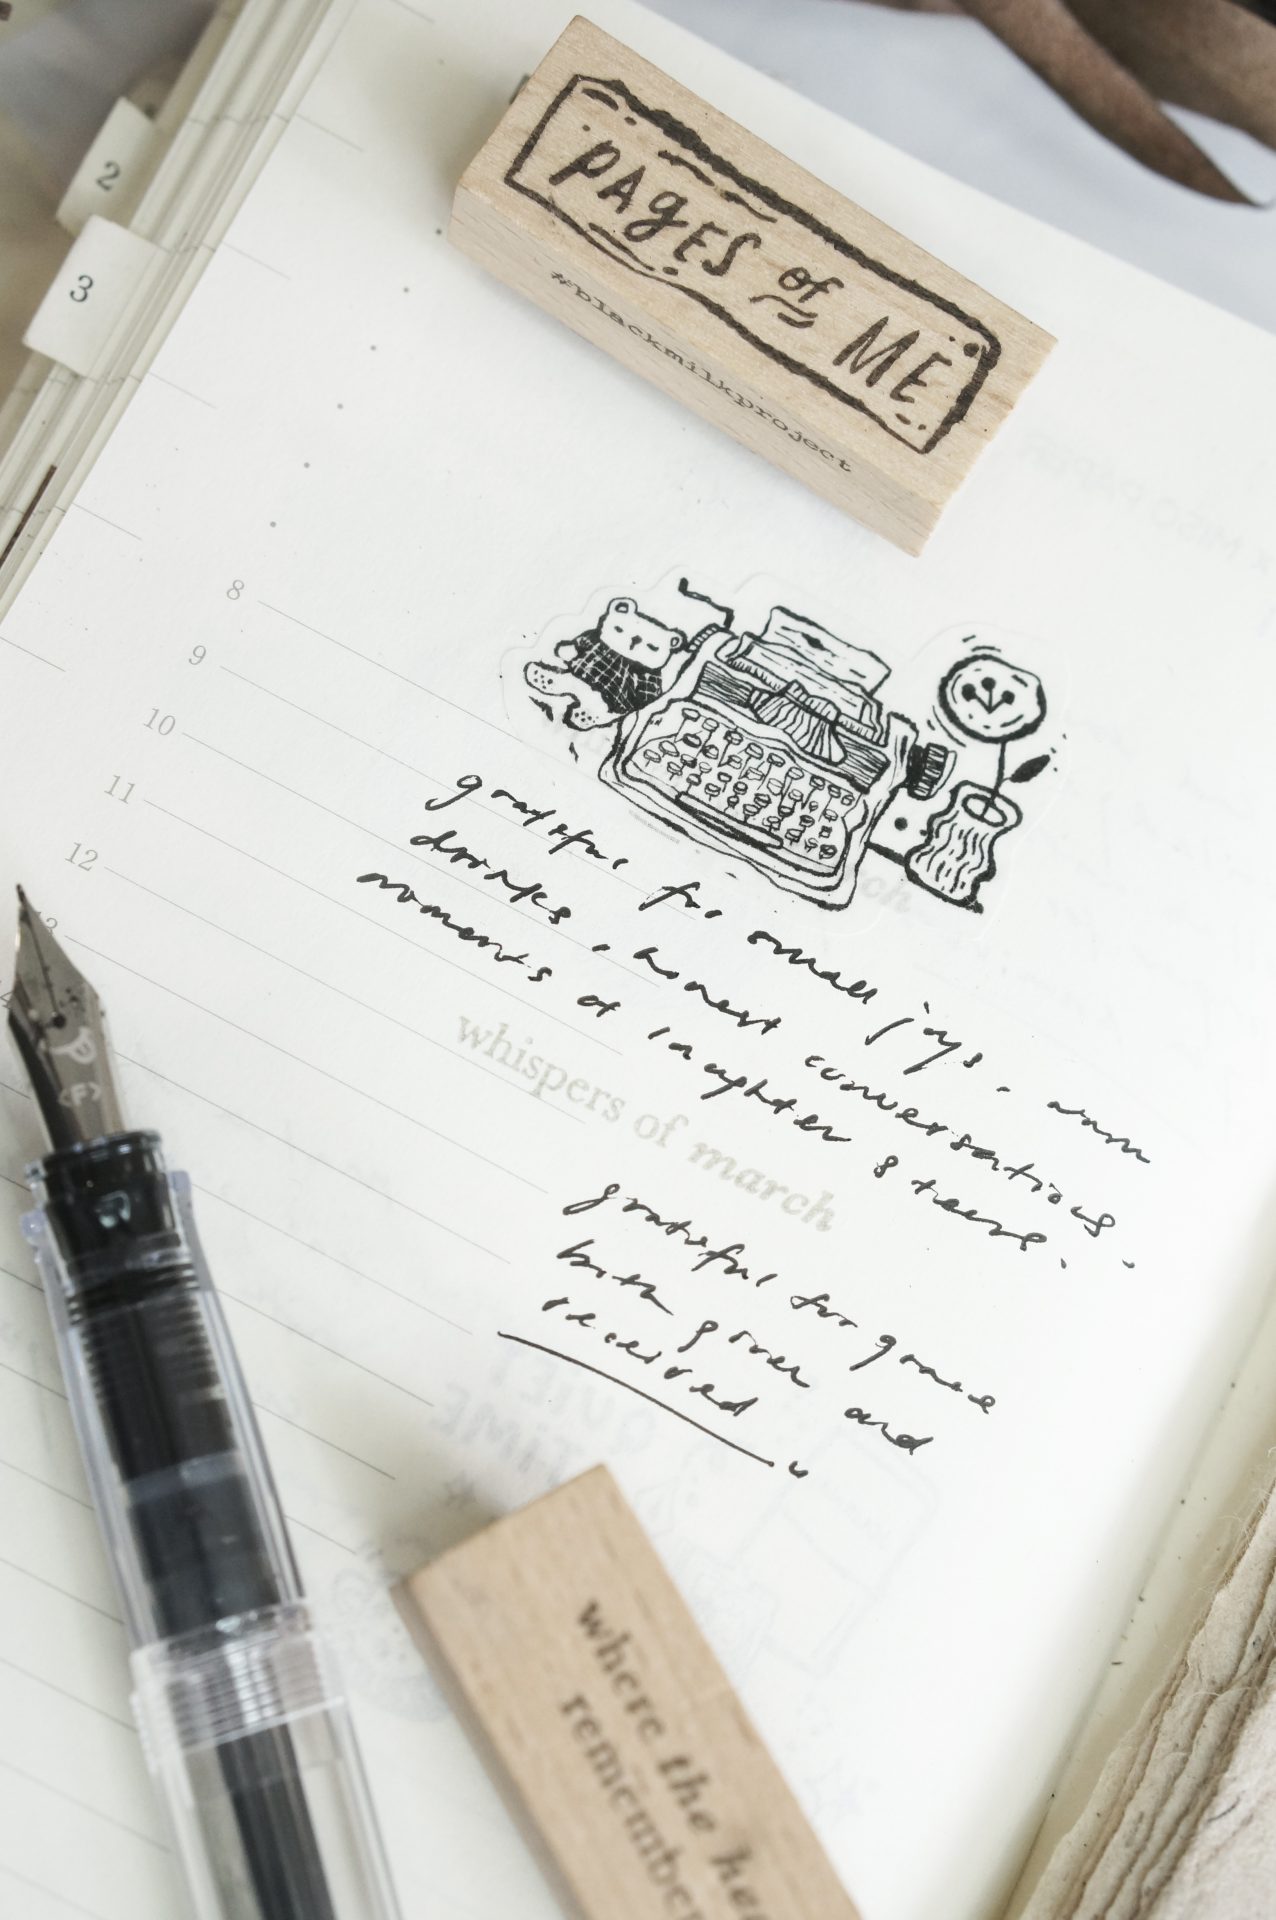 2
3
PAGES of ME
#blackmilkproject
8
9
10
11
12
13
grateful for small joys. warm
drinks, honest conversations.
moments of laughter & tears.
whispers of march
grateful for grace
both given and
received
QUIET
TIME
where the
remember